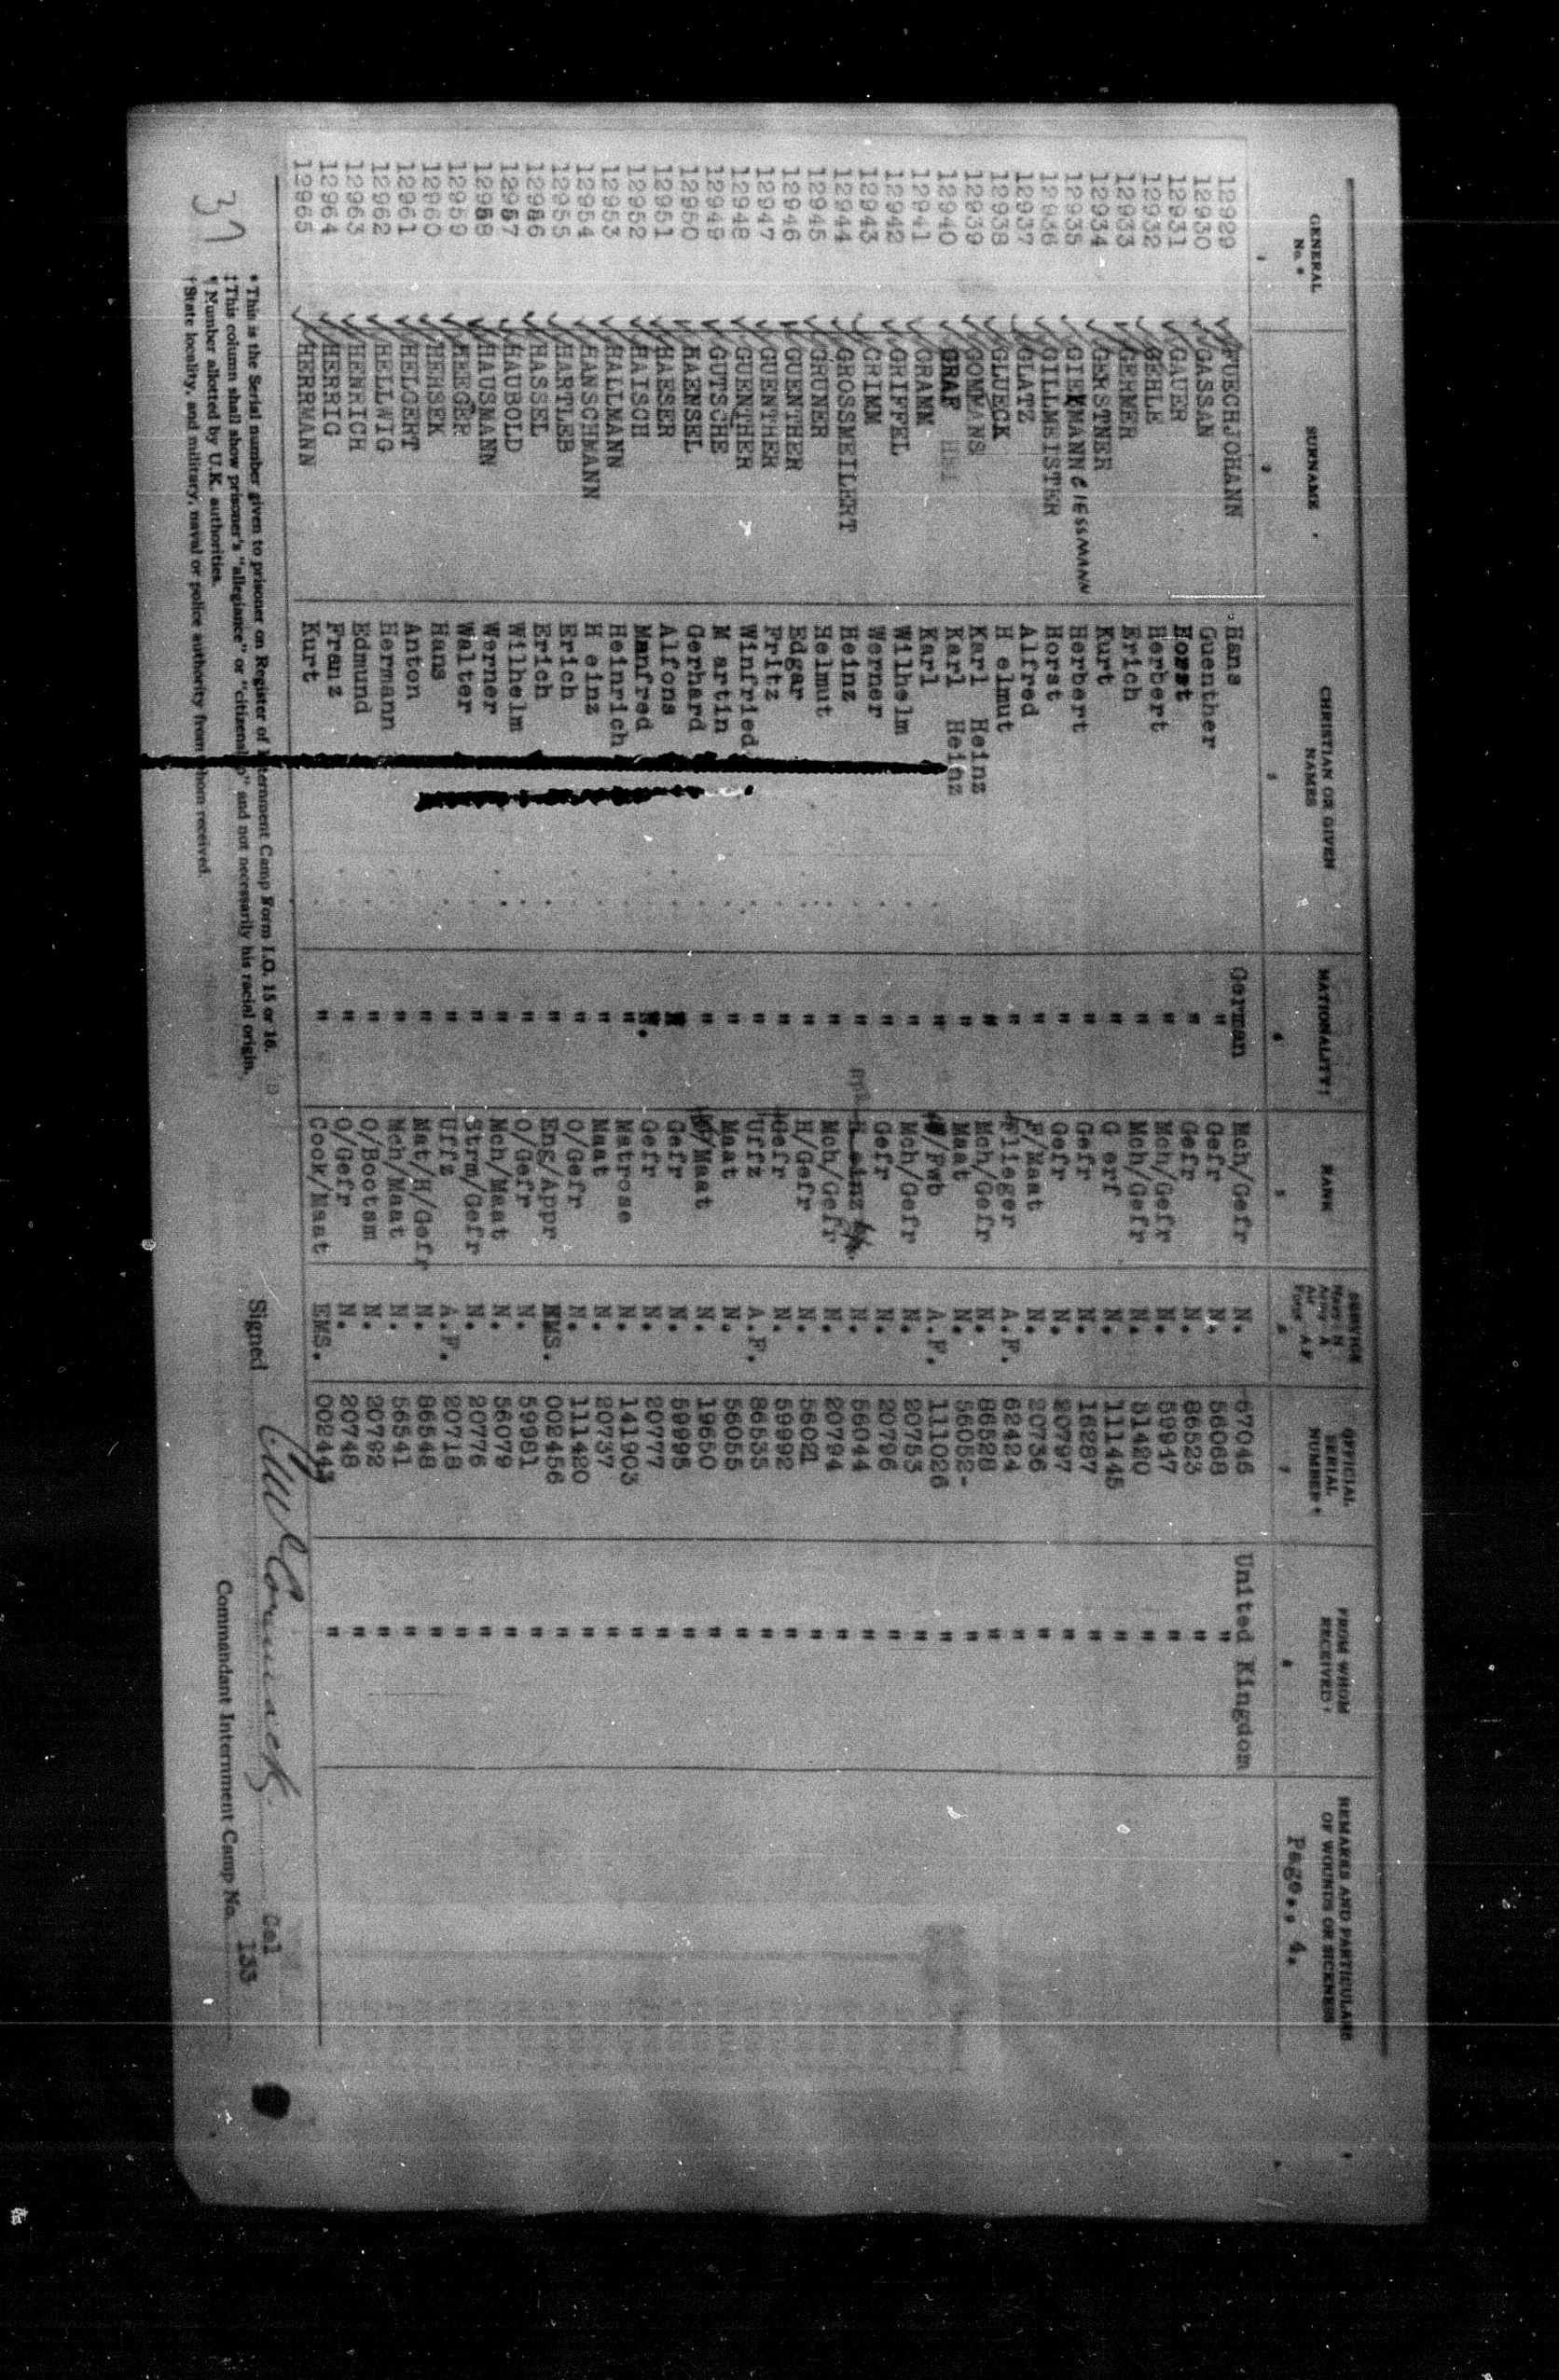 GENERAL No. * SURNAME CHRISTIAN OR GIVEN NAMES NATIONALITY‡ RANK SERVICE Navy N Army A Air Force A.F. OFFICIAL SERIAL NUMBER¶ FROM WHOM RECEIVED† REMARKS AND PARTICULARS OF WOUNDS OR SICKNESS
1 2 3 4 5 6 7 8 Page.. 4.
12929 FUECHJOHANN Hans German Mch/Gefr N. 67046 United Kingdom
12930 GASSAN Guenther " Gefr N. 56068 "
12931 GAUER Horst " Gefr N. 86523 "
12932 GEHLE Herbert " Mch/Gefr N. 59947 "
12933 GERMER Erich " Mch/Gefr N. 51420 "
12934 GERSTNER Kurt " G erf N. 111445 "
12935 GIEKMANN GIESSMANN Herbert " Gefr N. 16287 "
12936 GILLMEISTER Horst " Gefr N. 20797 "
12937 GLATZ Alfred " F/Maat N. 20736 "
12938 GLUECK H elmut " Flieger A.F. 62424 "
12939 GOMMANS Karl Heinz " Mch/Gefr N. 86528 "
12940 GRAF Karl Heinz " Maat N. 56052- "
12941 GRAMM Karl " /Fwb A.F. 111026 "
12942 GRIFFEL Wilhelm " Mch/Gefr N. 20753 "
12943 GRIMM Werner " Gefr N. 20796 "
12944 GROSSMEILERT Heinz " H einz N. 56044 "
12945 GRUNER Helmut " Mch/Gefr N. 20794 "
12946 GUENTHER Edgar " H/Gefr N. 56021 "
12947 GUENTHER Fritz " Gefr N. 59992 "
12948 GUENTHER Winfried " Uffz A.F. 86535 "
12949 GUTSCHE M artin " Maat N. 56055 "
12950 HAENSEL Gerhard " /Maat N. 19650 "
12951 HAESER Alfons " Gefr N. 59995 "
12952 HAISCH Manfred " Gefr N. 20777 "
12953 HALLMANN Heinrich " Matrose N. 141903 "
12954 HANSCHMANN H einz " Maat N. 20737 "
12955 HARTLEB Erich " O/Gefr N. 111420 "
12956 HASSEL Erich " Eng/Appr EMS. 002456 "
12957 HAUBOLD Wilhelm " O/Gefr N. 59981 "
12958 HAUSMANN Werner " Mch/Maat N. 56079 "
12959 HEEGER Walter " Strm/Gefr N. 20776 "
12960 HEHSEK Hans " Uffz A.F. 20718 "
12961 HELGERT Anton " Mat/H/Gefr N. 86548 "
12962 HELLWIG Hermann " Mch/Maat N. 56541 "
12963 HENRICH Edmund " O/Bootsm N. 20792 "
12964 HERRIG Franz " O/Gefr N. 20748 "
12965 HERRMANN Kurt " Cook/Maat EMS. 002443 "
* This is the Serial number given to prisoner on Register of Internment Camp Form I.O. 15 or 16.
‡ This column shall show prisoner's "allegiance" or "citizenship" and not necessarily his racial origin.
¶ Number allotted by U.K. authorities.
† State locality, and military, naval or police authority from whom received.
37
Signed Col
Commandant Internment Camp No. 133